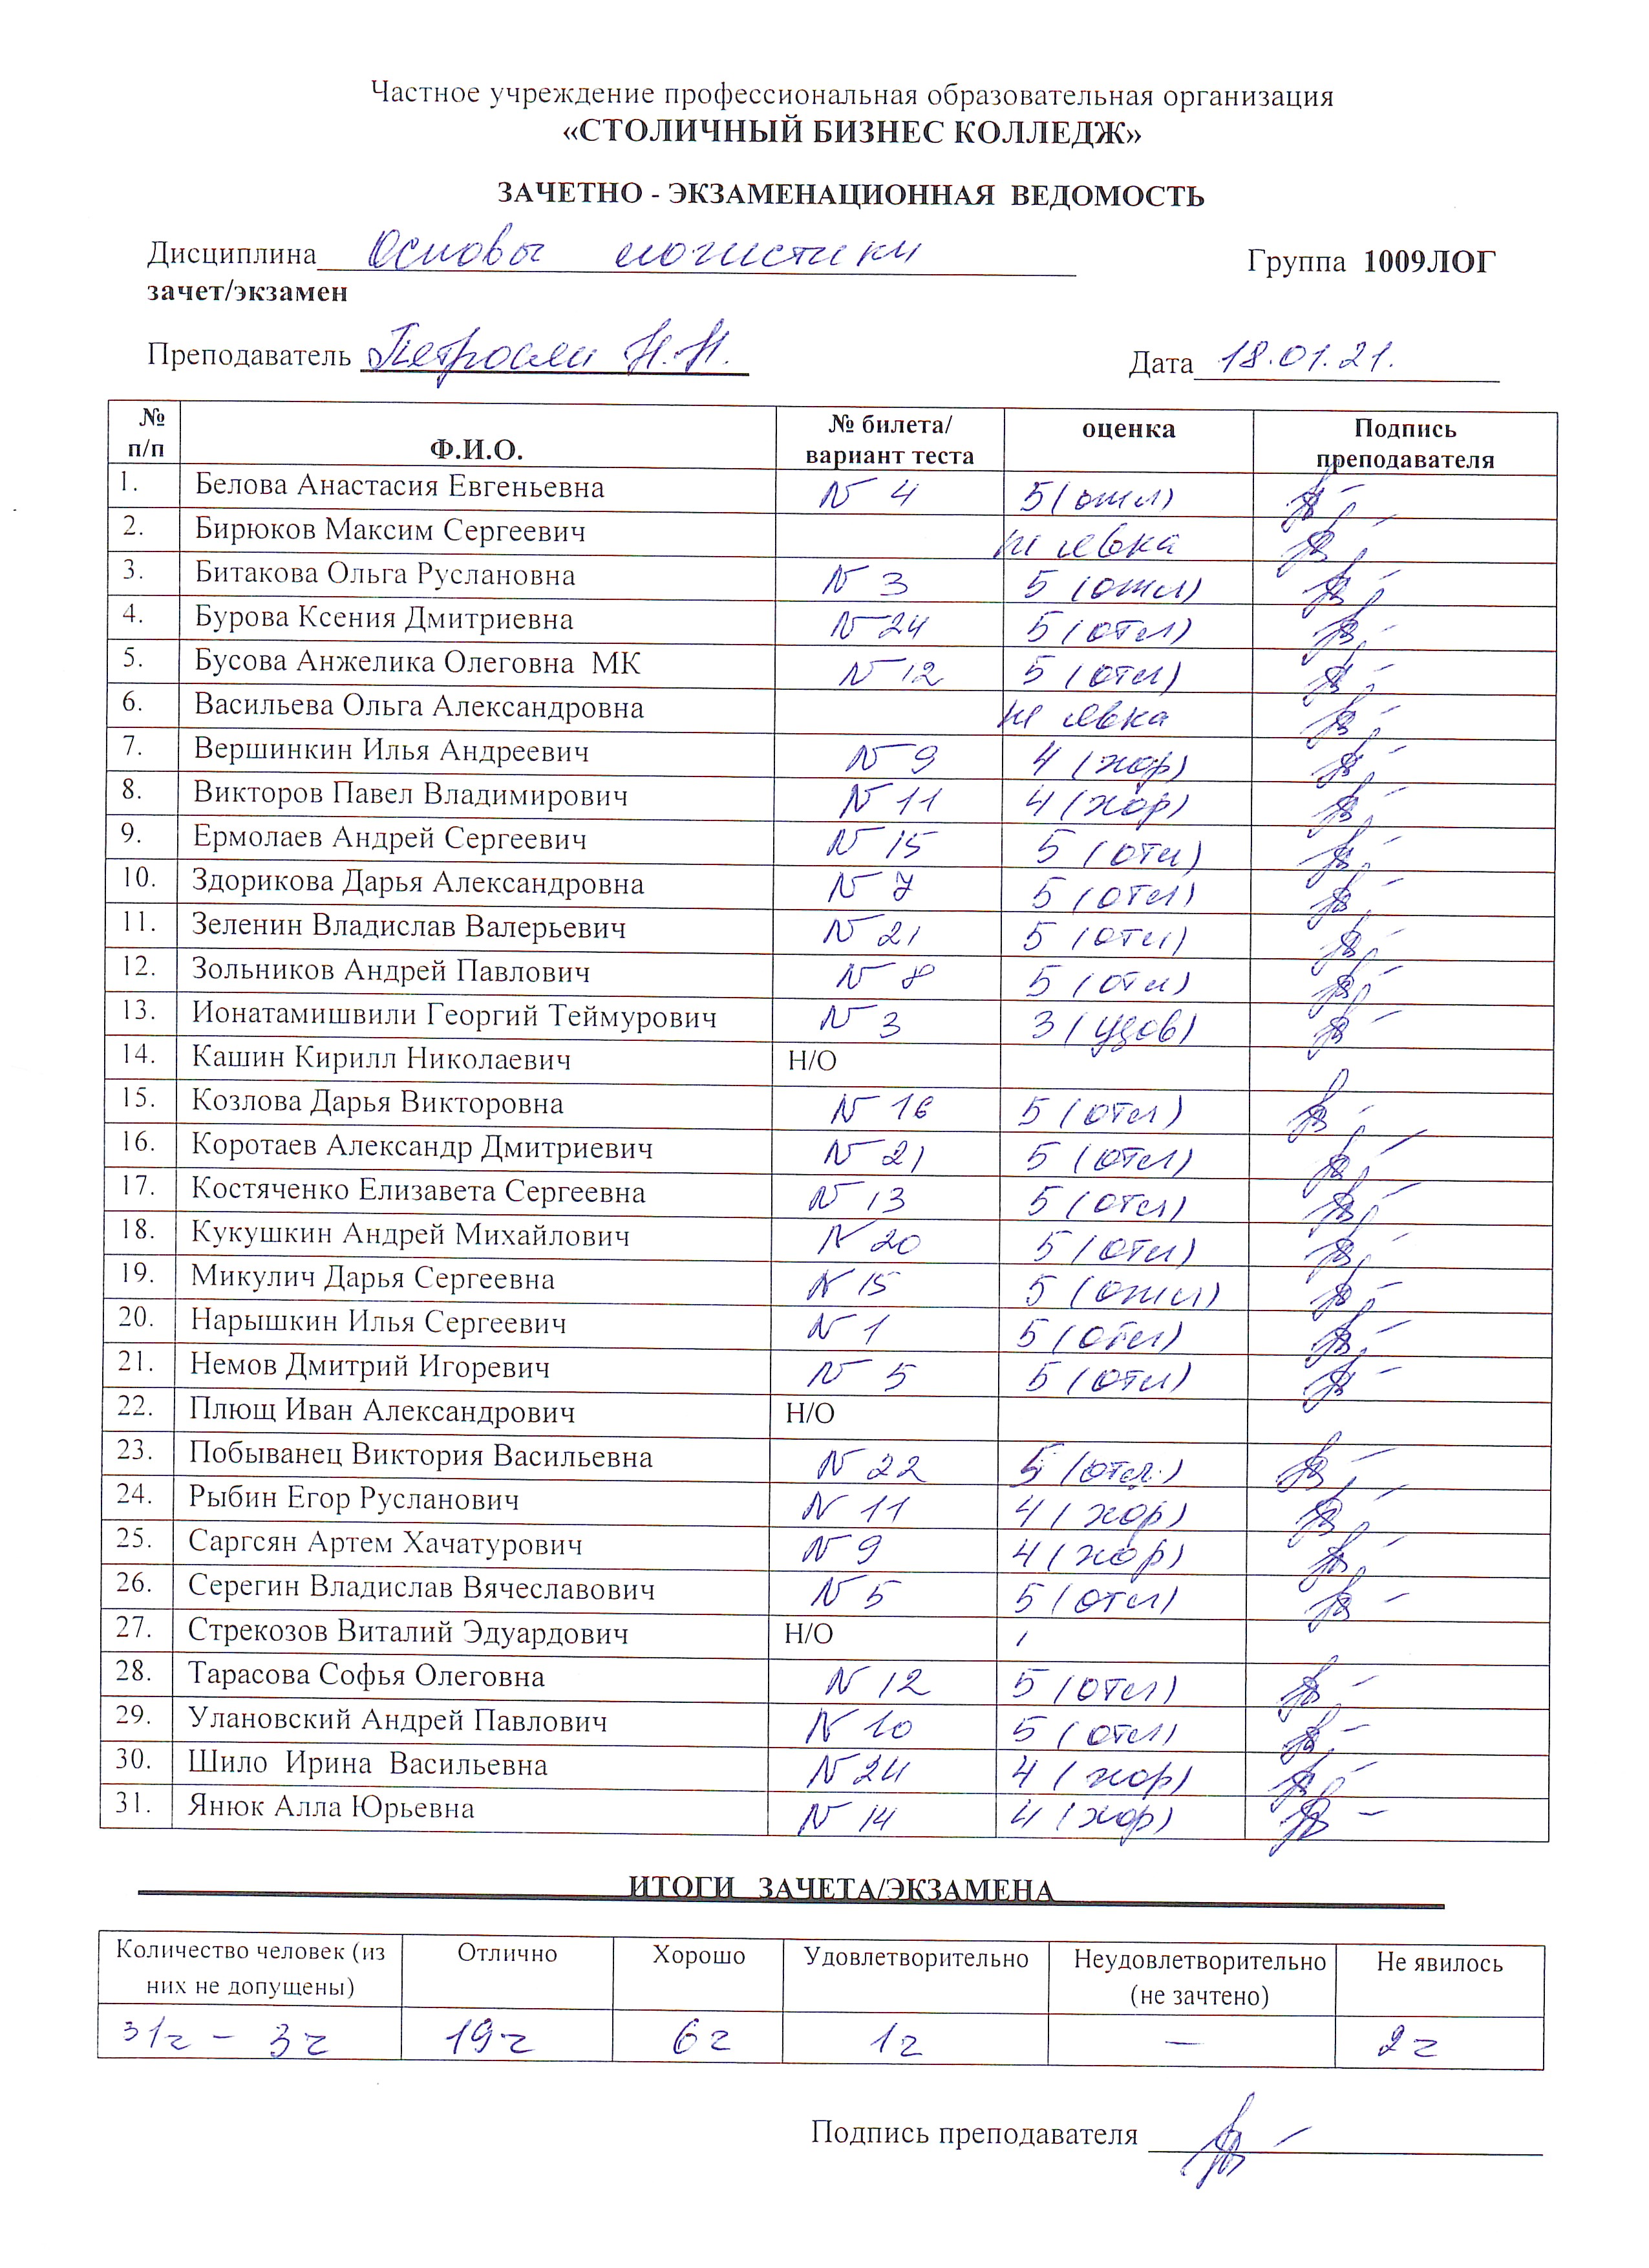 Частное учреждение профессиональная образовательная организация
«СТОЛИЧНЫЙ БИЗНЕС КОЛЛЕДЖ»
ЗАЧЕТНО - ЭКЗАМЕНАЦИОННАЯ ВЕДОМОСТЬ
Дисциплина Основы логистики Группа 1009ЛОГ
зачет/экзамен
Преподаватель Петросян Н.Н. Дата 18.01.21.
№ п/п Ф.И.О. № билета/ вариант теста оценка Подпись преподавателя
1. Белова Анастасия Евгеньевна N 4 5 (отл)
2. Бирюков Максим Сергеевич не явка
3. Битакова Ольга Руслановна N 3 5 (отл)
4. Бурова Ксения Дмитриевна N 24 5 (отл)
5. Бусова Анжелика Олеговна МК N 12 5 (отл)
6. Васильева Ольга Александровна не явка
7. Вершинкин Илья Андреевич N 9 4 (хор)
8. Викторов Павел Владимирович N 11 4 (хор)
9. Ермолаев Андрей Сергеевич N 15 5 (отл)
10. Здорикова Дарья Александровна N 7 5 (отл)
11. Зеленин Владислав Валерьевич N 21 5 (отл)
12. Зольников Андрей Павлович N 8 5 (отл)
13. Ионатамишвили Георгий Теймурович N 3 3 (удов)
14. Кашин Кирилл Николаевич Н/О
15. Козлова Дарья Викторовна N 16 5 (отл)
16. Коротаев Александр Дмитриевич N 21 5 (отл)
17. Костяченко Елизавета Сергеевна N 13 5 (отл)
18. Кукушкин Андрей Михайлович N 20 5 (отл)
19. Микулич Дарья Сергеевна N 15 5 (отл)
20. Нарышкин Илья Сергеевич N 1 5 (отл)
21. Немов Дмитрий Игоревич N 5 5 (отл)
22. Плющ Иван Александрович Н/О
23. Побыванец Виктория Васильевна N 22 5 (отл.)
24. Рыбин Егор Русланович N 11 4 (хор)
25. Саргсян Артем Хачатурович N 9 4 (хор)
26. Серегин Владислав Вячеславович N 5 5 (отл)
27. Стрекозов Виталий Эдуардович Н/О
28. Тарасова Софья Олеговна N 12 5 (отл)
29. Улановский Андрей Павлович N 10 5 (отл)
30. Шило Ирина Васильевна N 24 4 (хор)
31. Янюк Алла Юрьевна N 14 4 (хор)
ИТОГИ ЗАЧЕТА/ЭКЗАМЕНА
Количество человек (из Отлично Хорошо Удовлетворительно Неудовлетворительно Не явилось
них не допущены) (не зачтено)
31ч - 3ч 19ч 6ч 1ч — 2ч
Подпись преподавателя